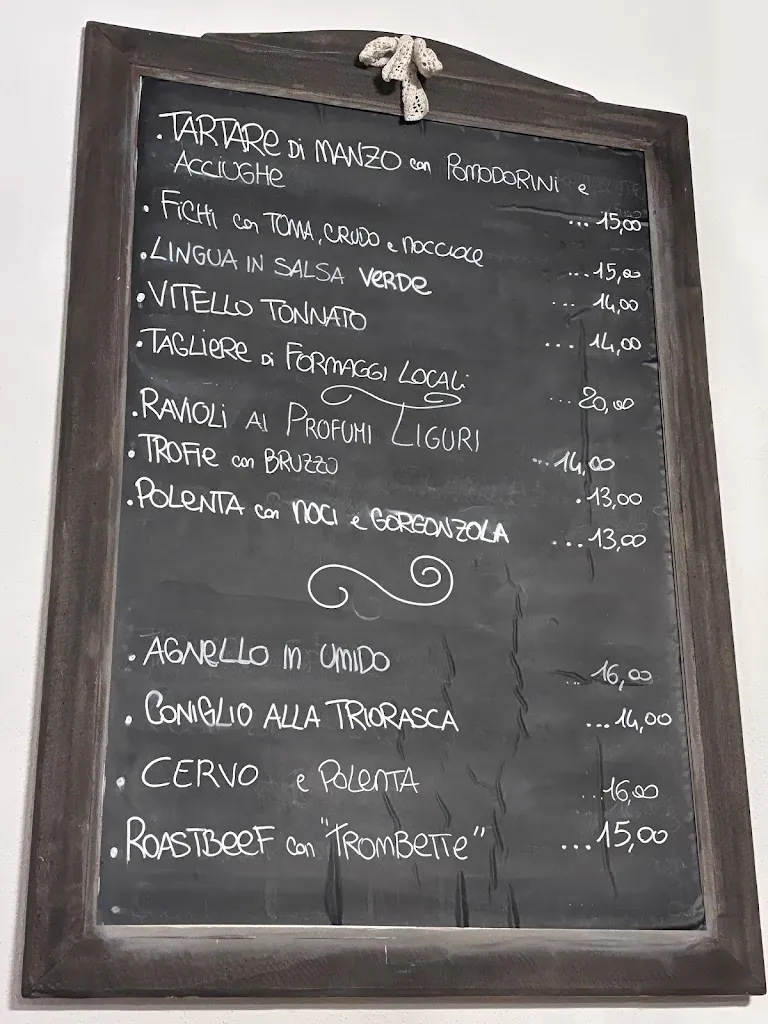 • TARTARE Di MANZO con POMODORINI e
ACCIUGHE ... 15,00
• FICHI con TOMA, CRUDO e NOCCIOLE ... 15,00
• LINGUA IN SALSA VERDE ... 14,00
• VITELLO TONNATO ... 14,00
• TAGLIERE di FORMAGGI LOCALi ... 20,00
• RAVIOLI AI PROFUMI LIGURI ... 14,00
• TROFIE con BRUZZO . 13,00
• POLENTA con NOCI e GORGONZOLA ... 13,00
• AGNELLO IN UMIDO ... 16,00
• CONIGLIO ALLA TRIORASCA ... 14,00
• CERVO e POLENTA ... 16,00
• ROASTBEEF con "TROMBETTE" ... 15,00